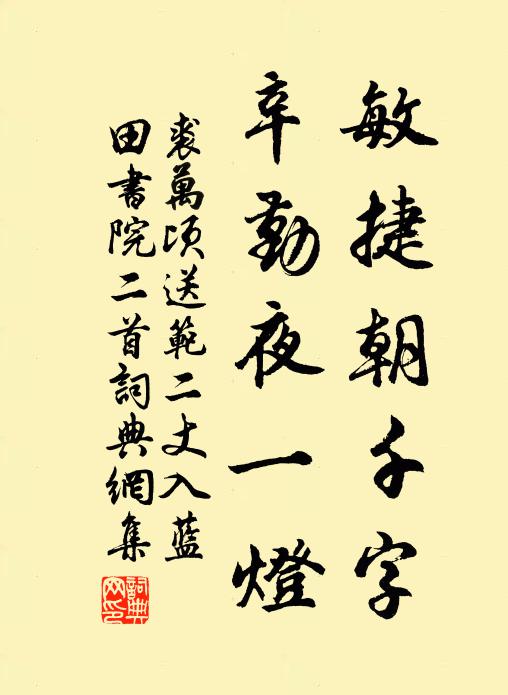 敏捷朝千字
辛勤夜一燈
裘萬頃送範二丈入藍
田書院二首詞典網集
詞典
网印